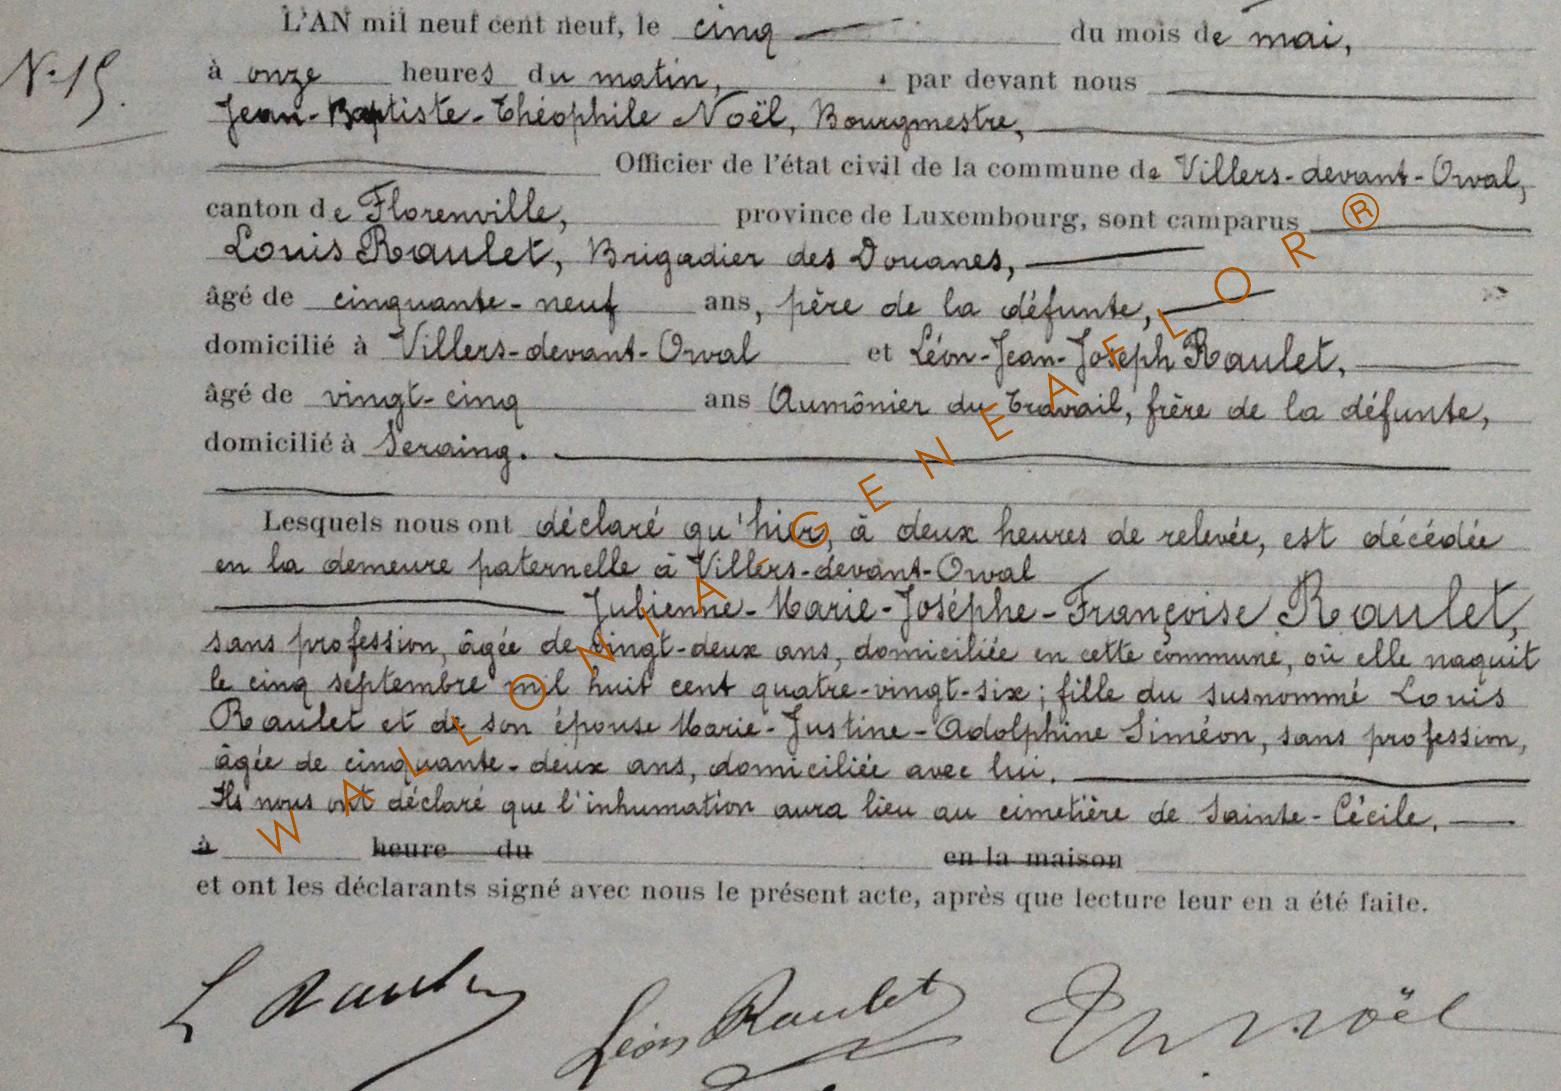 L'AN mil neuf cent neuf, le cinq du mois de mai,
N° 15.
à onze heures du matin, par devant nous
Jean-Baptiste-Théophile Noël, Bourgmestre,
Officier de l'état civil de la commune de Villers-devant-Orval,
canton de Florenville, province de Luxembourg, sont camparus
Louis Raulet, Brigadier des Douanes,
âgé de cinquante-neuf ans, père de la défunte,
domicilié à Villers-devant-Orval et Léon-Jean-Joseph Raulet,
âgé de vingt-cinq ans Aumônier du Travail, frère de la défunte,
domicilié à Seraing.
Lesquels nous ont déclaré qu'hier, à deux heures de relevée, est décédée
en la demeure paternelle à Villers-devant-Orval
Julienne-Marie-Joséphe-Françoise Raulet,
sans profession, âgée de vingt-deux ans, domiciliée en cette commune, où elle naquit
le cinq septembre mil huit cent quatre-vingt-six ; fille du susnommé Louis
Raulet et de son épouse Marie-Justine-Adolphine Siméon, sans profession,
âgée de cinquante-deux ans, domiciliée avec lui.
Ils nous ont déclaré que l'inhumation aura lieu au cimetière de Sainte-Cécile.
à heure du en la maison
et ont les déclarants signé avec nous le présent acte, après que lecture leur en a été faite.
L Raulet
Léon Raulet
Th Noël
WALLONIA-GENEAFLOR®